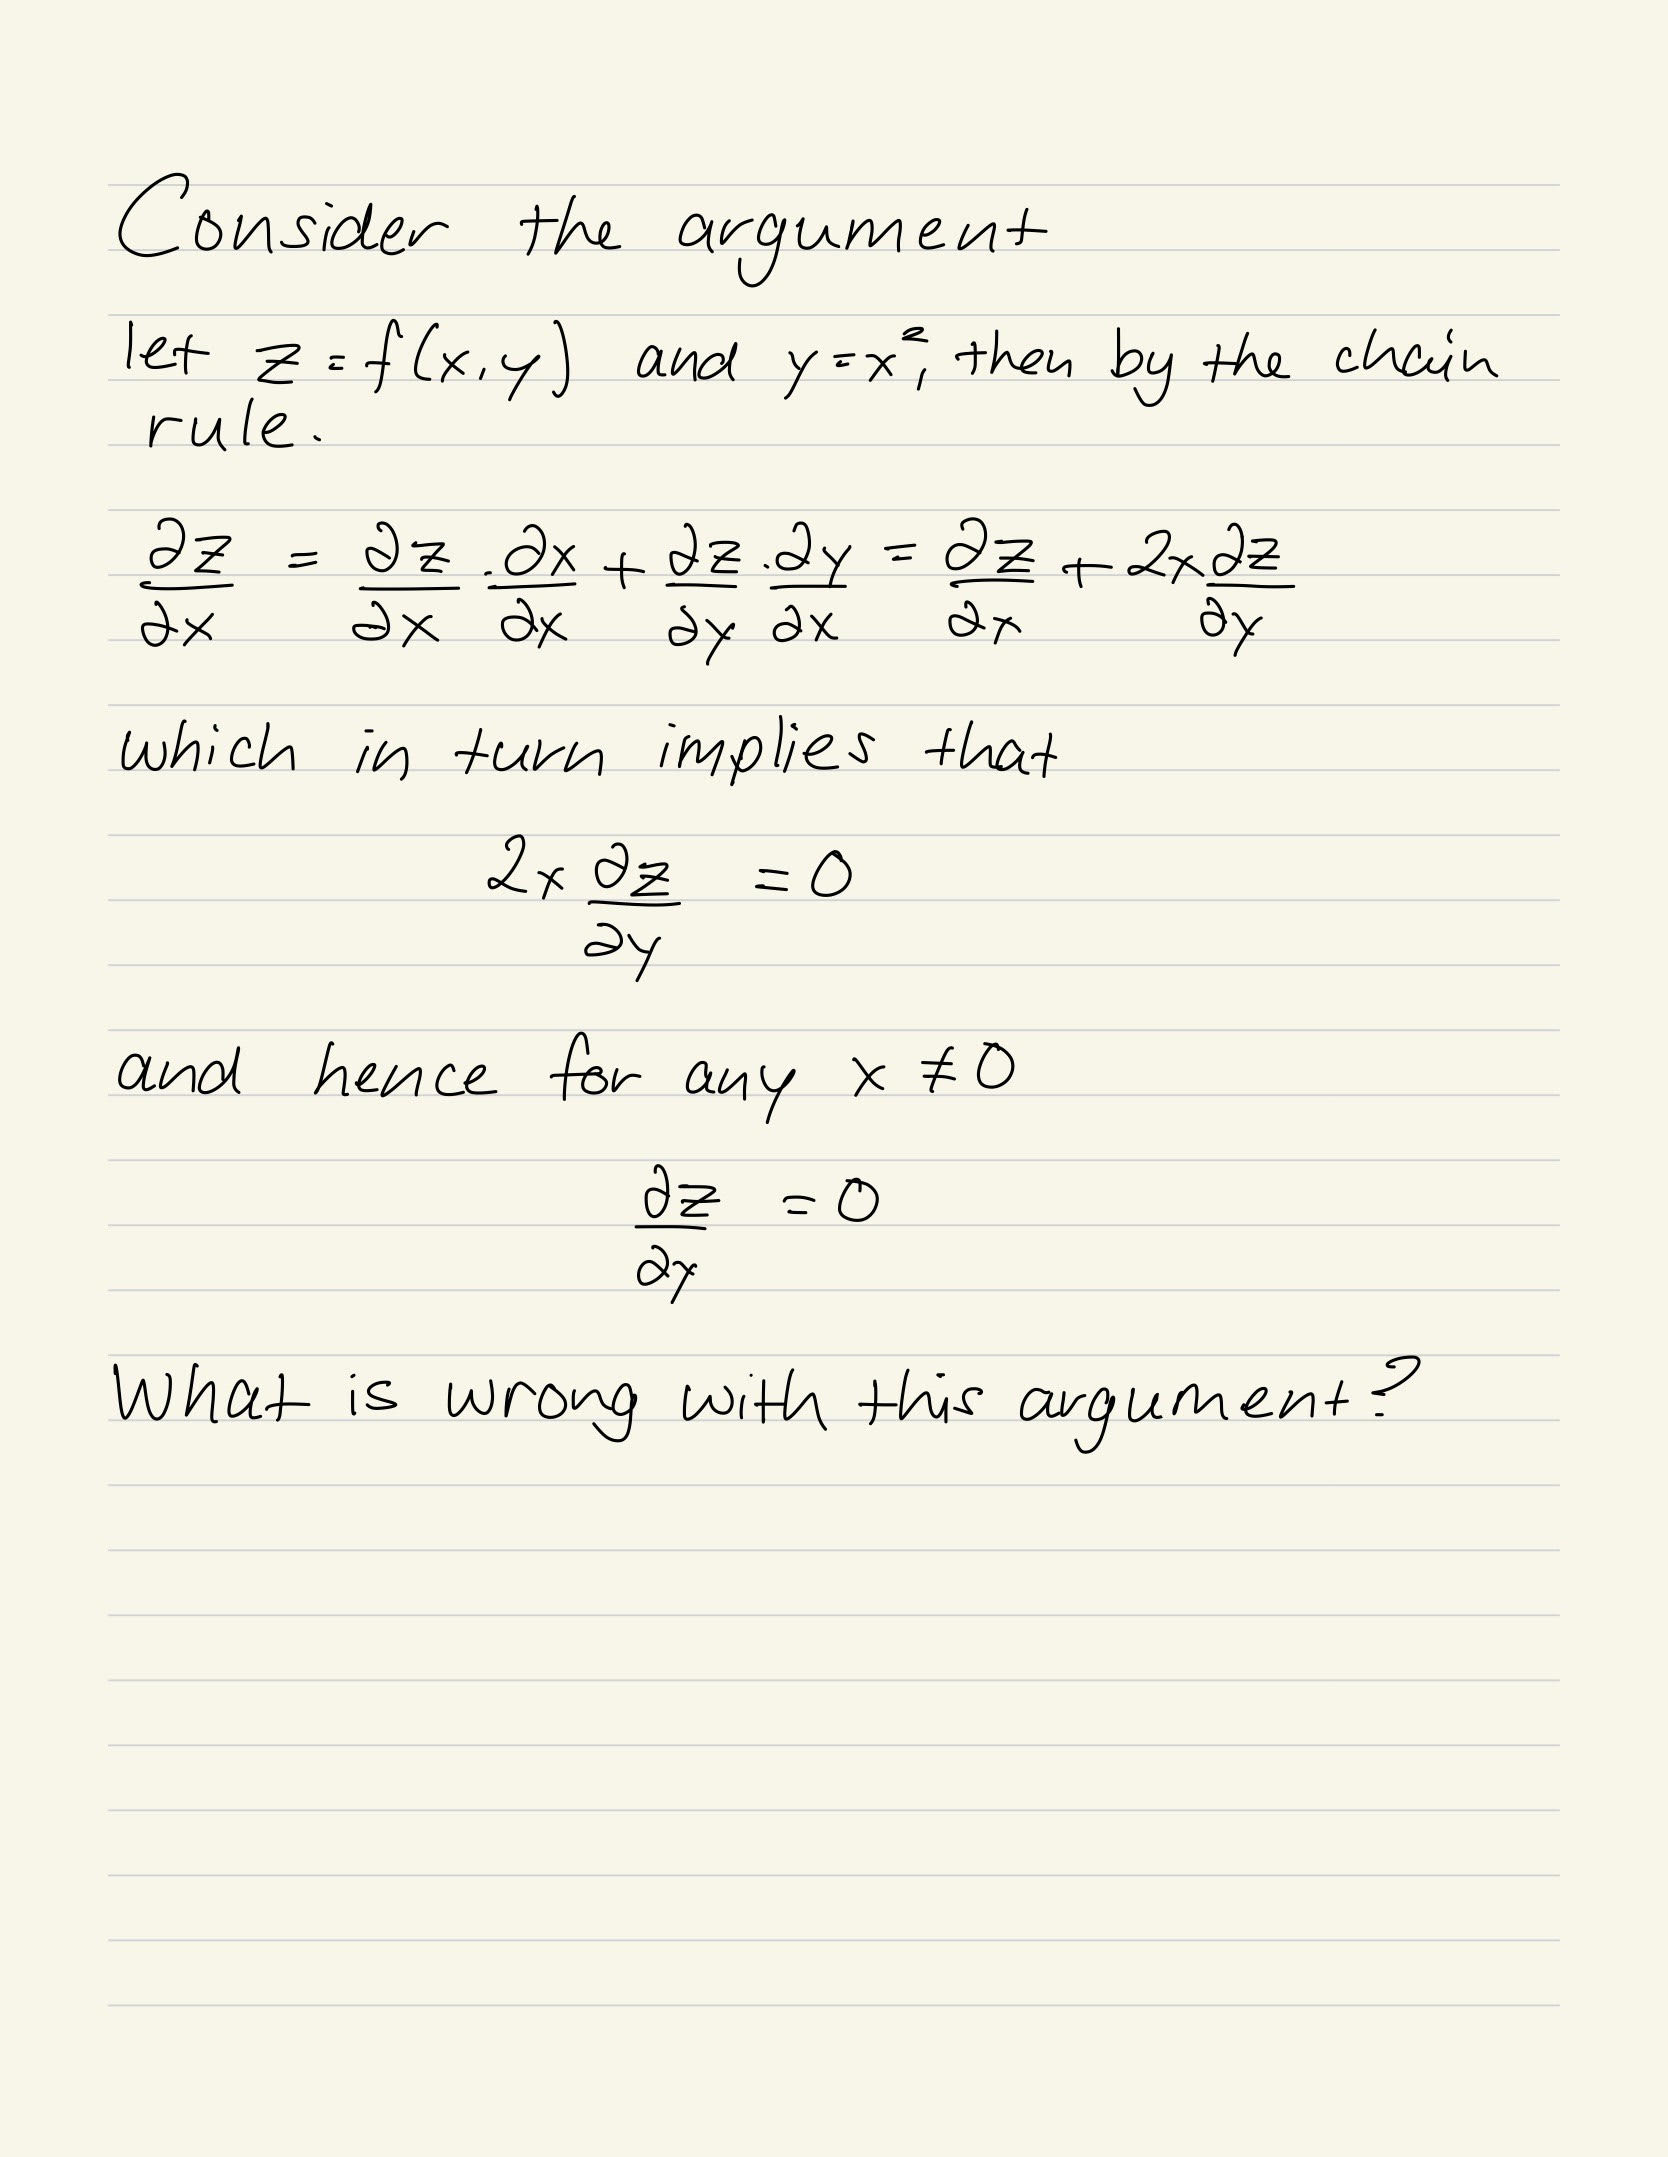 Consider the argument
let z = f(x,y) and y=x², then by the chain
rule.
∂z/∂x = ∂z/∂x · ∂x/∂x + ∂z/∂y · ∂y/∂x = ∂z/∂x + 2x ∂z/∂y
which in turn implies that
2x ∂z/∂y = 0
and hence for any x ≠ 0
∂z/∂y = 0
What is wrong with this argument?